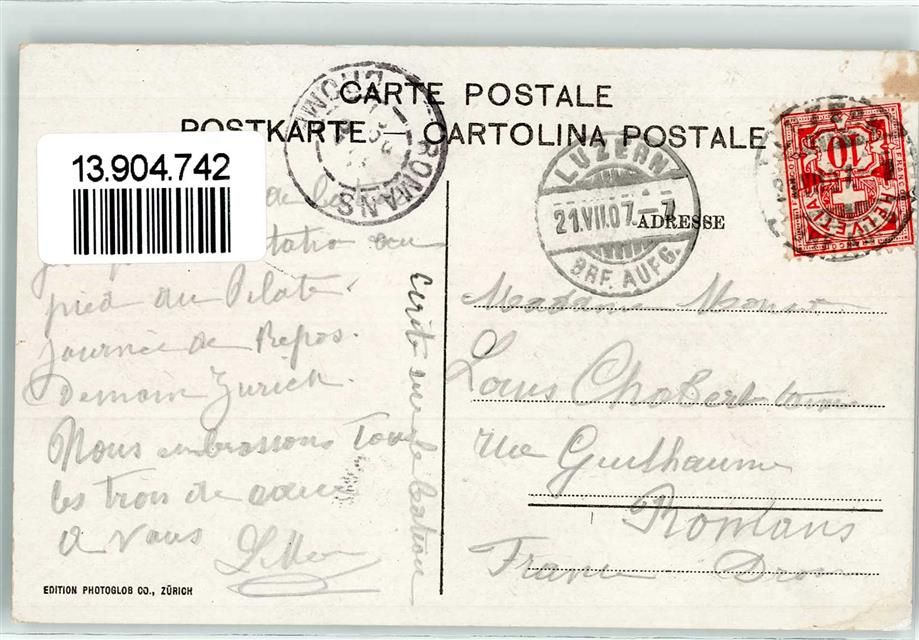 CARTE POSTALE
POSTKARTE — CARTOLINA POSTALE
13.904.742
ROMANS
DROME
LUZERN
21.VII.07.-7
BRF. AUFG.
ADRESSE
10
HELVETIA
pied du Pilate.
journée de Repos.
Demain Zurich.
Nous embrassons tous
les trois de cœur
à vous
Écrite sur le bateau
Madame
Louis Chabert
rue Guilhaume
Romans
France Drome
EDITION PHOTOGLOB CO., ZÜRICH